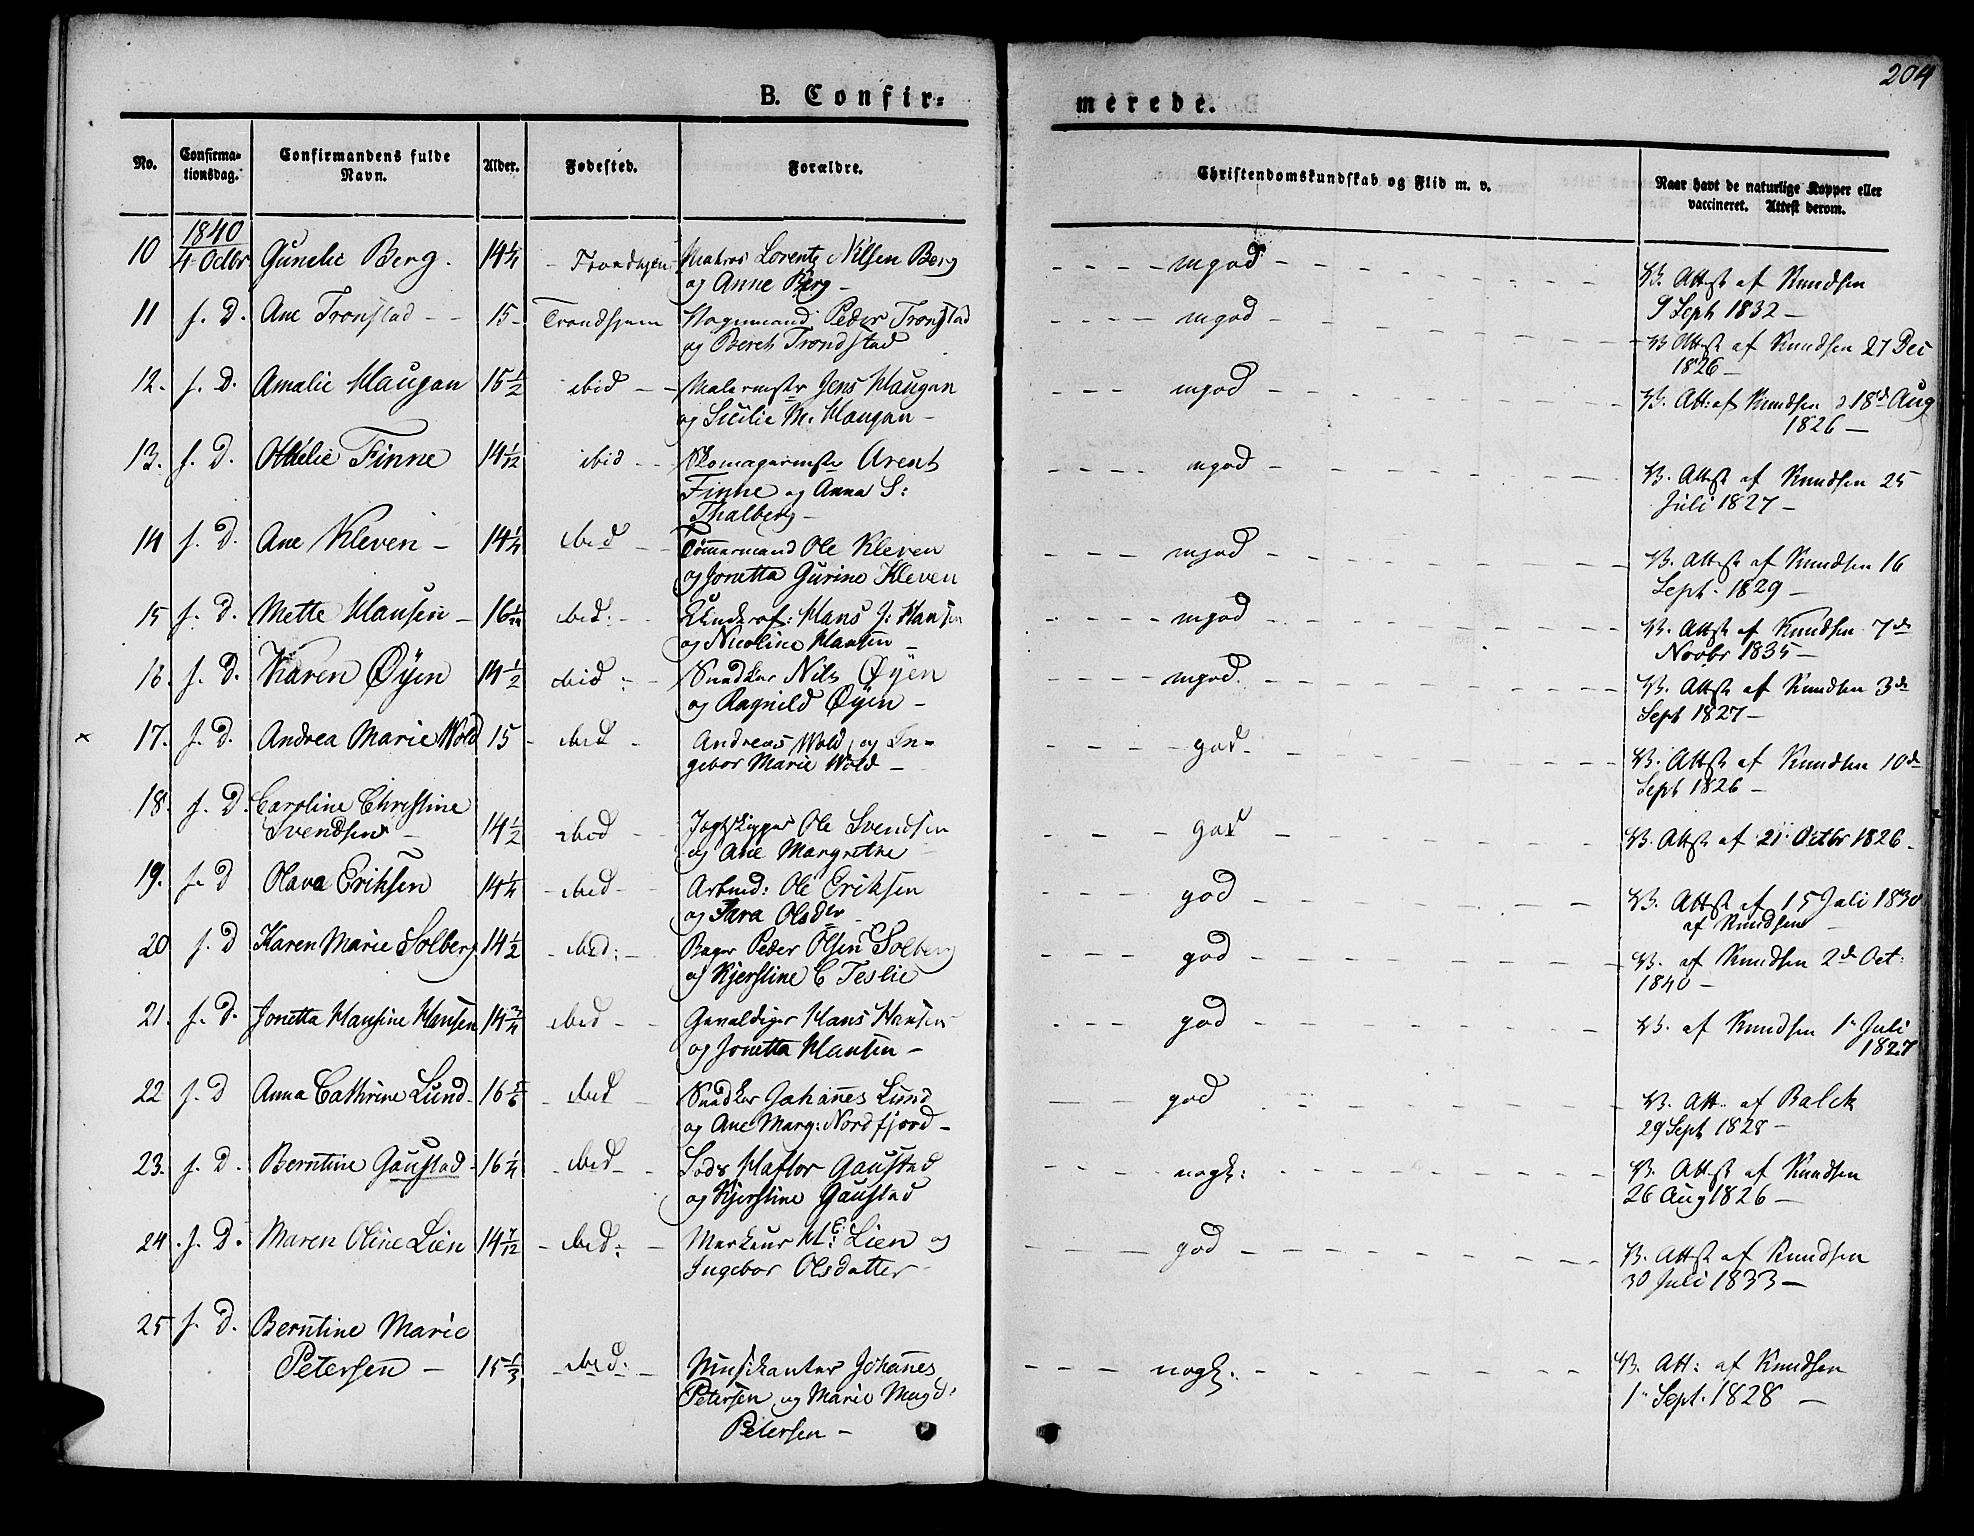 204
B. Confir=
merede.
No.
Confirma=
tionsdag.
Confirmandens fulde
Navn.
Alder.
Fødested.
Forældre.
Christendomskundskab og Flid m. v.
Naar havt de naturlige Kopper eller
vaccineret. Attest derom.
1840
10 4 Octbr Gunelie Berg. 14 1/4 - Trondhjem Matros Lorentz Nilsen Berg
og Anne Berg -
mgod
V. Attest af Knudsen
9 Sept 1832 -
11 s. D. Ane Tronstad - - 15 - Trondhjem Peder Tronstad
og Bereth Trondstad
mgod
V. Attst af Knudsen 27 Dec
1826 -
12. s. D. Amalie Haugan 15 1/2 ibid - - Malermstr Jens Haugan
og Sicilie M. Haugan -
mgod
V. Att: af Knudsen d 18de Aug
1826 -
13. s. D. Finne 14 1/12 ibid - - Skomagermstr Arent
Finne og Anna S:
Thalberg -
mgod
V. Attest af Knudsen 25
Juli 1827 -
14 s. D. Ane Kleven - 14 1/4 ibid - - Tømmermand Ole Kleven
og Jonetta Gurine Kleven
mgod
V. Attest af Knudsen 16
Sept. 1829 -
15 s. D. Mette Hansen - 16 ibid: - - Hans J: Hansen
og Nicoline Hansen -
mgod
V. Attst af Knudsen 7de
Novbr 1835 -
16. s. D. Karen Øyen 14 1/2 ibid: - Snedker Nils Øyen
og Ragnild Øyen -
mgod.
V. Attst af Knudsen 3de
Sept 1827 -
× 17. s. D. Andrea Marie Wold 15 - ibid - Andreas Wold og In=
gebor Marie Wold -
god
V. Attst af Knudsen 10de
Sept 1826 -
18. s. D. Caroline Christine
Svendsen - 14 1/2 ibid - Jagtskipper Ole Svendsen
og Ane Margrethe
god
V. Attst af 21. Octbr 1826.
19. s. D Olava Eriksen 14 1/4 - ibid - Arbmd: Ole Eriksen
og Sara Olsdtr
god
V. Attst af 15 Juli 1830
af Knudsen
20 s. D Karen Marie Solberg 14 1/2 - ibid: - Bager Peder Olsen Solberg
og Kjerstine C Teslie
god
V. af Knudsen 2de Oct:
1840 -
21. s. D. Jonetta Hansine Hansen 14 3/4 ibid - - Gevaldiger Hans Hansen
og Jonetta Hansen -
god
V. af Knudsen 1. Juli
1827
22 s. D Anna Cathrine Lund 16 5/6 - ibid - Snedker Johannes Lund
og Ane Marg: Nordfjord -
god
V. Att: af Balck
29 Sept 1828 -
23. s. D. Berntine Gaustad 16 1/4 - ibid - Haftor Gaustad
og Kjerstine Gaustad
nogl:
V. Attst af Knudsen
26 Aug 1826 -
24. s. D. Maren Oline Lien 14 7/12 - ibid: - Markeur Lien og
Ingebor Olsdatter
god
V. Attst af Knudsen
30 Juli 1833 -
25 s. D. Berntine Marie
Petersen - 15 1/3 - ibid: - Musikanter Johannes
Petersen og Marie Magd:
Petersen -
nogl.
V. Att: af Knudsen
1. Sept. 1828 -